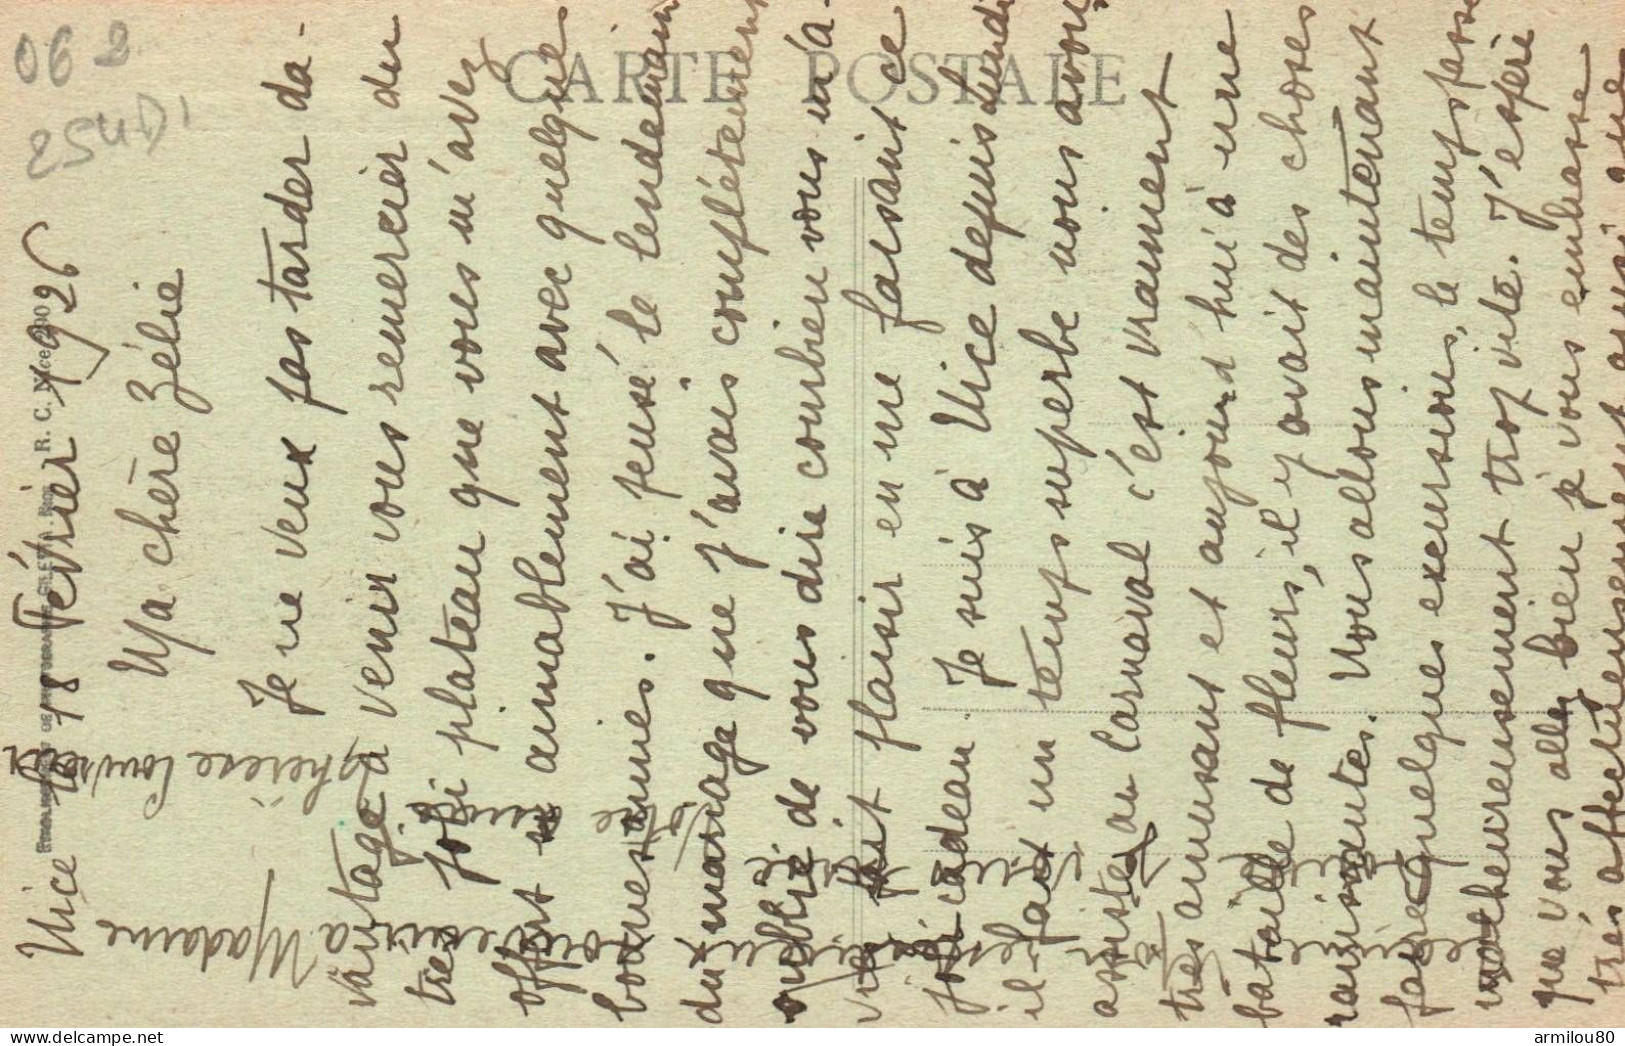 CARTE POSTALE
R. C. Nice
Nice le 18 Février 1926
Ma chère Zélie
Je ne veux pas tarder da-
vantage à venir vous remercier du
très joli plateau que vous m'avez
offert si aimablement avec quelques
bonnes amies. J'ai pensé le lendemain
du mariage que j'avais complètement
oublié de vous dire combien vous m'a-
viez fait plaisir en me faisant ce
joli cadeau. Je suis à Nice depuis lundi
il fait un temps superbe nous avons
assisté au Carnaval c'est vraiment
très amusant et aujourd'hui à une
bataille de fleurs, il y avait des choses
ravissantes. Nous allons maintenant
faire quelques excursions, le temps passe
malheureusement trop vite. J'espère
que vous allez bien je vous embrasse
très affectueusement ainsi que
Madame
Votre
Thérèse
06 2
254D1
armilou80